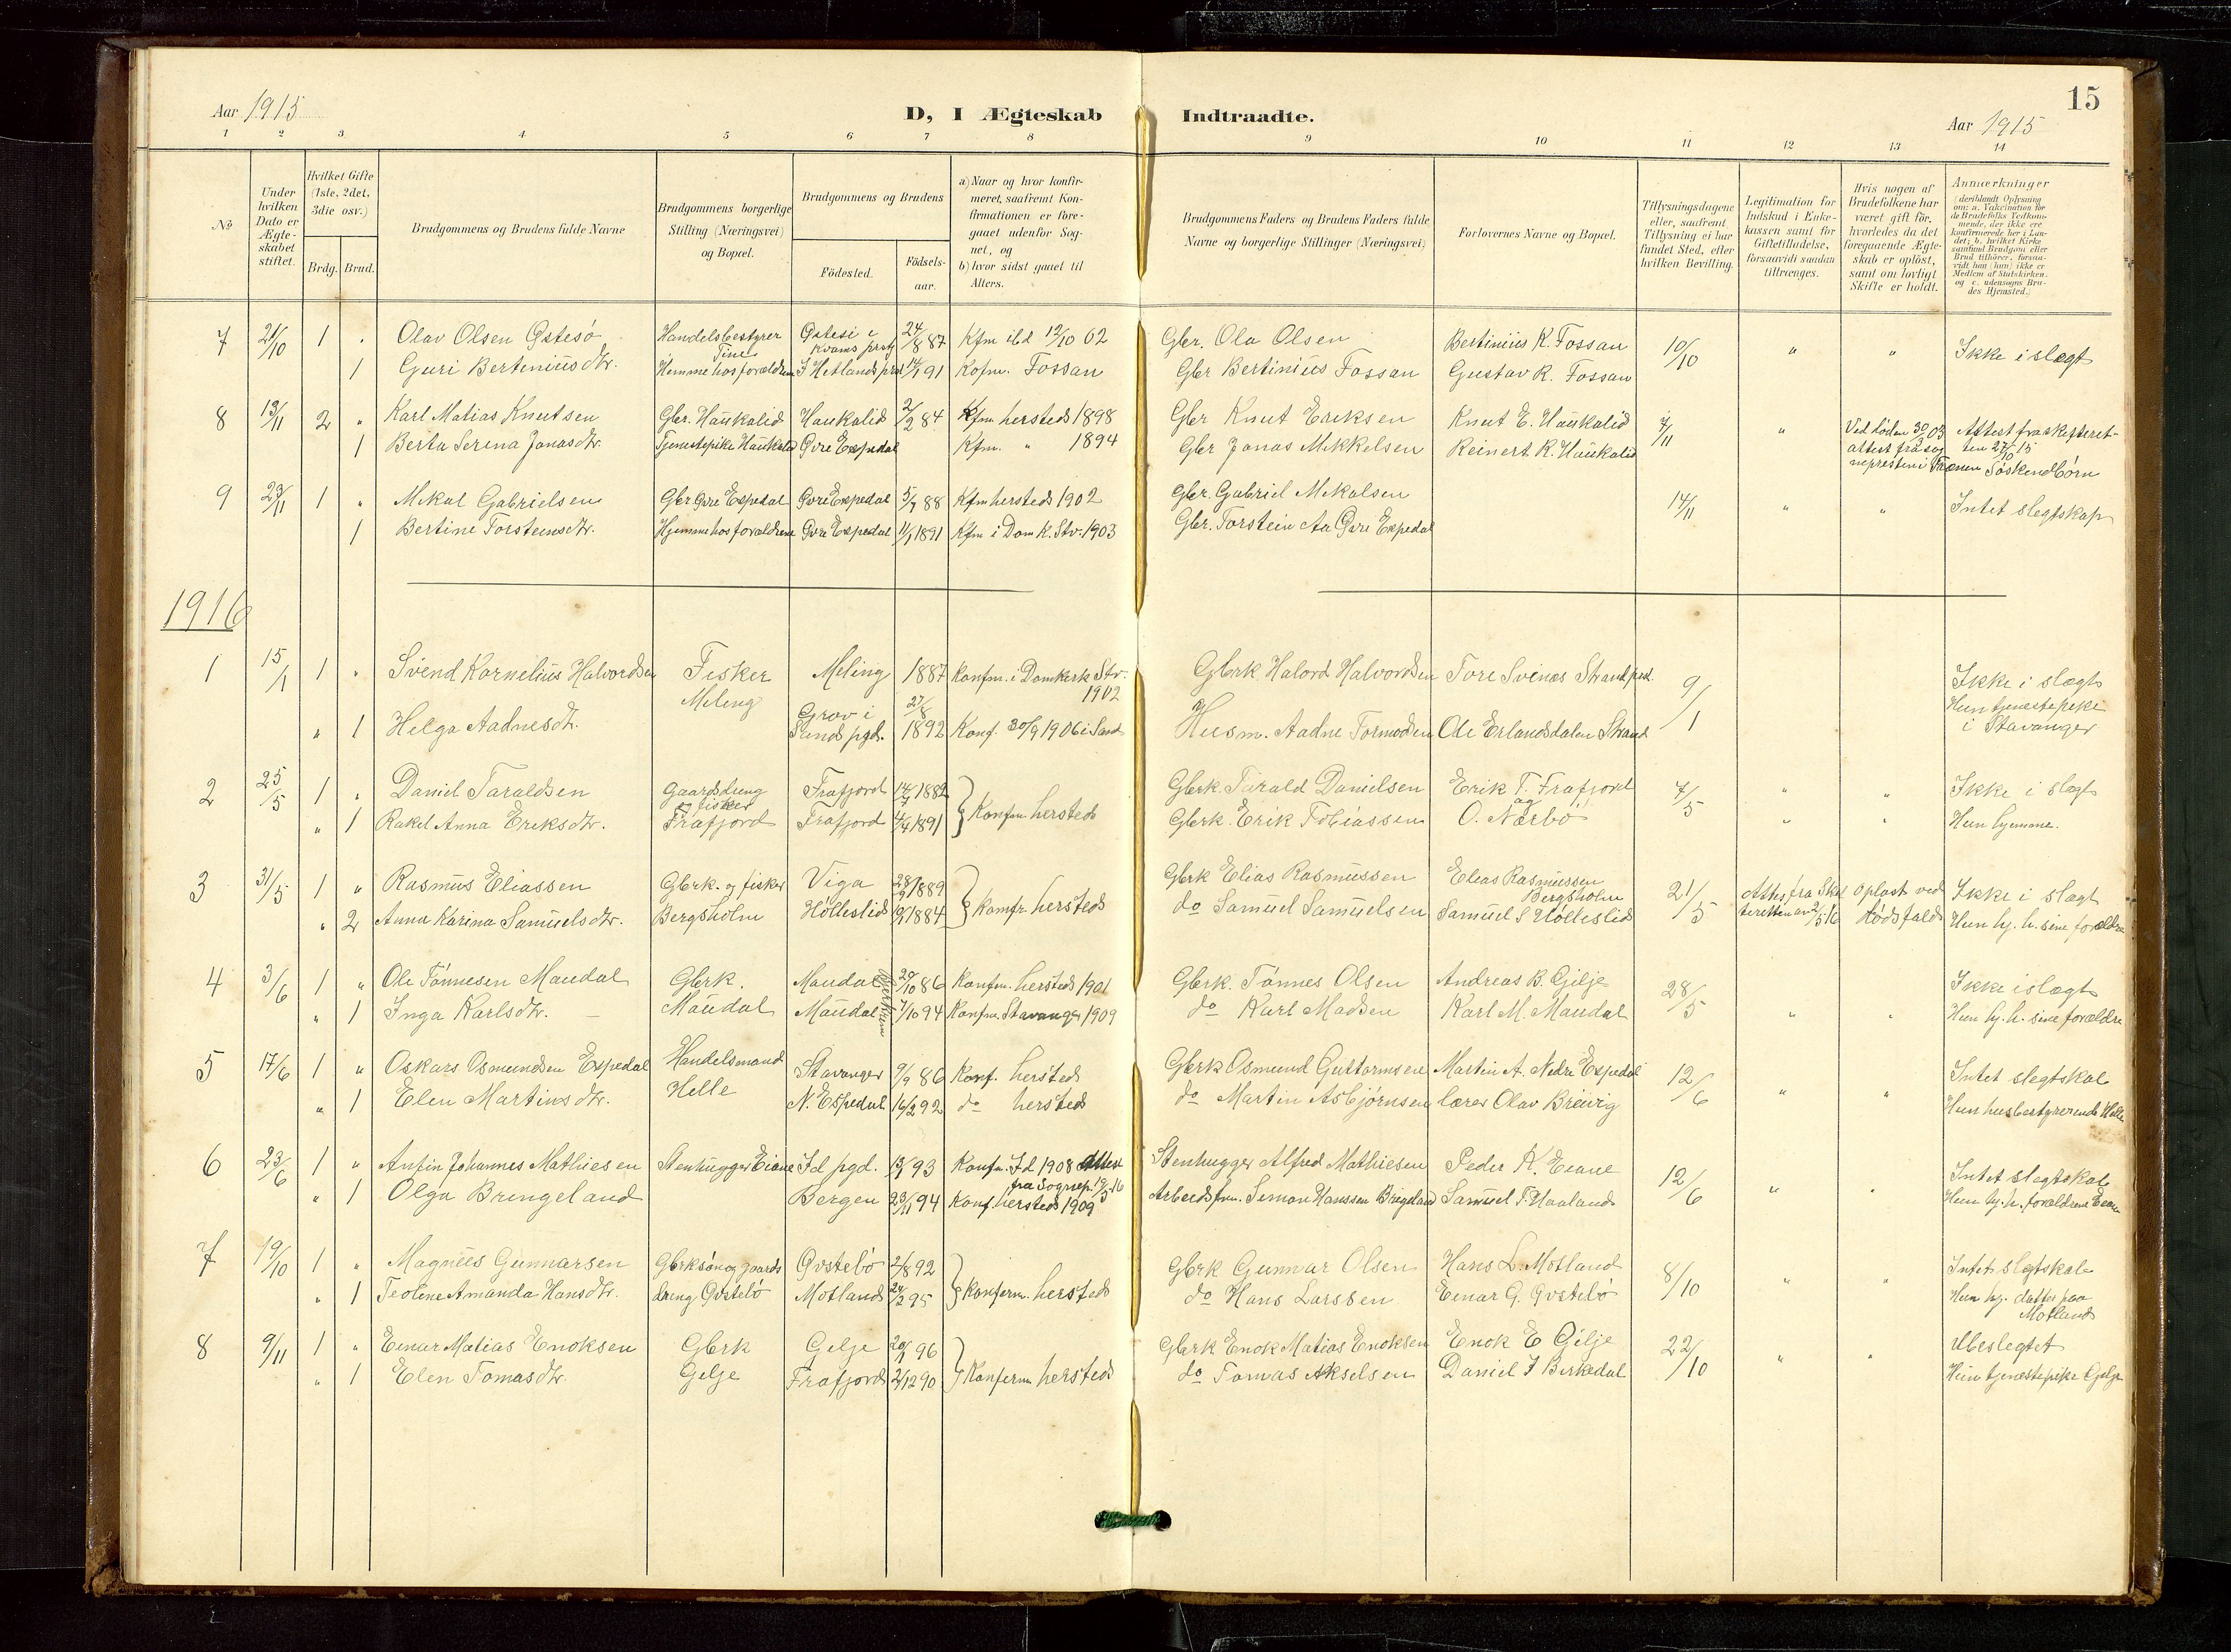 15
Aar 1915
D, I Ægteskab Indtraadte.
Aar 1915
1 2 3 4 5 6 7 8 9 10 11 12 13 14
No
Under hvilken Dato er Ægte-skabet stiftet.
Hvilket Gifte (1ste, 2det, 3die osv.)
Brdg. Brud.
Brudgommens og Brudens fulde Navne
Brudgommens borgerlige Stilling (Næringsvei) og Bopæl.
Brudgommens og Brudens
Födested.
Födsels-aar.
a) Naar og hvor konfir-meret, saafremt Kon-firmationen er fore-gaaet udenfor Sog-net, og
b) hvor sidst gaaet til Alters.
Brudgommens Faders og Brudens Faders fulde Navne og borgerlige Stillinger (Næringsvei)
Forlovernes Navne og Bopæl.
Tillysningsdagene eller, saafremt Tillysning ei har fundet Sted, efter hvilken Bevilling.
Legitimation for Indskud i Enke-kassen samt for Giftetilladelse, forsaavidt saadan tiltrænges.
Hvis nogen af Brudefolkene har været gift för, hvorledes da det foregaaende Ægte-skab er oplöst, samt om lovligt Skifte er holdt.
Anmærkninger (deriblandt Oplysning om: a. Vakcination for de Brudefolks Vedkom-mende, der ikke ere konfirmerede her i Lan-det; b. hvilket Kirke samfund Brudgom eller Brud tilhörer, forsaa-vidt han (hun) ikke er Medlem af Statskirken. og c. udensogns Bru-des Hjemsted.)
7 21/10 1 " Olav Olsen Østesø Handelsbestyrer Tine Østesi i Kvams prstg 24/8 87 Kfm ibd 12/10 02 Gbr. Ola Olsen Bertinius K. Fossan 10/10 " " Ikke i slegt
1 Guri Berteniusdtr. Hjemme hos forældrene Hetlands prst 14/4 91 Kofm. Fossan Gbr Bertinius Fossan Gustav R. Fossan
8 13/11 2 " Karl Matias Knutsen Gbr. Haukalid Haukalid 2/2 84 Kfm hersteds 1898 Gbr Knut Eriksen Knut E. Haukalid 7/11 " Ved döden 30/3 03 attest fra sog nepresten i Attest fra skifteret-ten 27/10 15
1 Berta Serina Jonasdtr. Tjenestepike Haukalid Øvre Espedal Kfm. " 1894 Gbr Jonas Mikkelsen Reinert K. Haukalid Söskendbörn
9 29/11 1 " Mikal Gabrielsen Gbr Øvre Espedal Øvre Espedal 5/7 88 Kfm hersteds 1902 Gbr. Gabriel Mikalsen 14/11 " " Intet slegtskap
1 Bertine Torsteinsdtr. Hjemme hos forældrene Øvre Espedal 11/1 1891 Kfm i Dom K. Stv. 1903 Gbr. Torstein Aa Øvre Espedal
1916
1 15/1 1 " Svend Kornelius Halvordsen Fisker Meling Meling 1887 Konfm. i Domkirk Stv. 1902 Gbrk Halord Halvordsen Tore Svines Strand pgd. 9/1 Ikke i slegt
" 1 Helga Aadnesdtr. Grov i Sands pgd. 27/8 1892 Konf. 30/9 1906 i Sand Husm. Aadne Tormodsen Ole Erlandsdalen Strand Hun tjenestepike i Stavanger
2 25/5 1 " Daniel Taraldsen Gaardsdreng og fisker Frafjord Frafjord 14/7 1882 Konfm hersteds Gbrk Tarald Danielsen Erik T. Frafjord og 7/5 " " Ikke i slegt
" 1 Rakel Anna Eriksdtr. Frafjord 4/4 1891 Gbrk. Erik Tobiassen O. Nærbö " " Hun hjemme.
3 31/5 1 " Rasmus Eliassen Gbrk. og fisker Bergsholm Viga 28/9 1889 Konfr. hersteds Gbrk Elias Rasmussen Elias Rasmussen Bergsholm 21/5 Attest fra Skif teretten av 2/5 16 Oplöst ved dödsfald Ikke i slegt
" 2 Anna Karina Samuelsdtr. Hölleslid 1884 do Samuel Samuelsen Samuel S Hölleslid Hun hj. h. sine forældre
4 3/6 1 " Ole Tönnesen Maudal Gbrk. Maudal Maudal 29/10 86 Konfm. hersteds 1901 Gbrk. Tönnes Olsen Andreas B. Gilje 28/5 " " Ikke i slegt
" 1 Inga Karlsdtr. Maudal 7/10 94 Konfm. Stavanger 1909 do Karl Madsen Karl M. Maudal Hun hj. h. sine forældre
5 17/6 1 " Oskars Osmundsen Espedal Handelsmand Helle Stavanger 9/9 86 Konf. hersteds Gbrk Osmund Guttormsen Martin A. Nedre Espedal 12/6 " " Intet slegtskab
" 1 Elen Martinsdtr. N. Espedal 16/2 92 do hersteds do Martin Asbjörnsen lærer Olav Breivig Hun husbestyrerinde Helle
6 23/6 1 " Anfin Johannes Mathiesen Stenhugger Eiane Id pgd. 93 Konfm. Id 1908 Attest fra Sognep. 19/5-16 Stenhugger Alfred Mathiesen Peder K. Eiane 12/6 " " Intet slegtskab
" 1 Olga Bringeland Bergen 23/11 94 Konf. hersteds 1909 Arbeidsfm. Simon Hanssen Bringeland Samuel T. Haaland Hun hj. h. forældrene Eiane
7 19/10 1 " Magnus Gunnarsen Gbrksön og gaards dreng Østebö Østebö 2/8 92 Konferm. hersteds Gbrk Gunnar Olsen Hans L. Motland 8/10 " " Intet slegtskab
" 1 Teoline Amanda Hansdtr. Motland 24/2 95 do Hans Larssen Einar G. Østebö Hun hj. datter paa Motland
8 9/11 1 " Einar Matias Enoksen Gbrk Gilje Gilje 96 Konferm hersteds Gbrk Enok Matias Enoksen Enok E Gilje 22/10 " " Ubeslegtet
" 1 Elen Tomasdtr. Frafjord 2/12 90 do Tomas Akselsen Daniel J Birkedal Hun tjenestepike Gilje